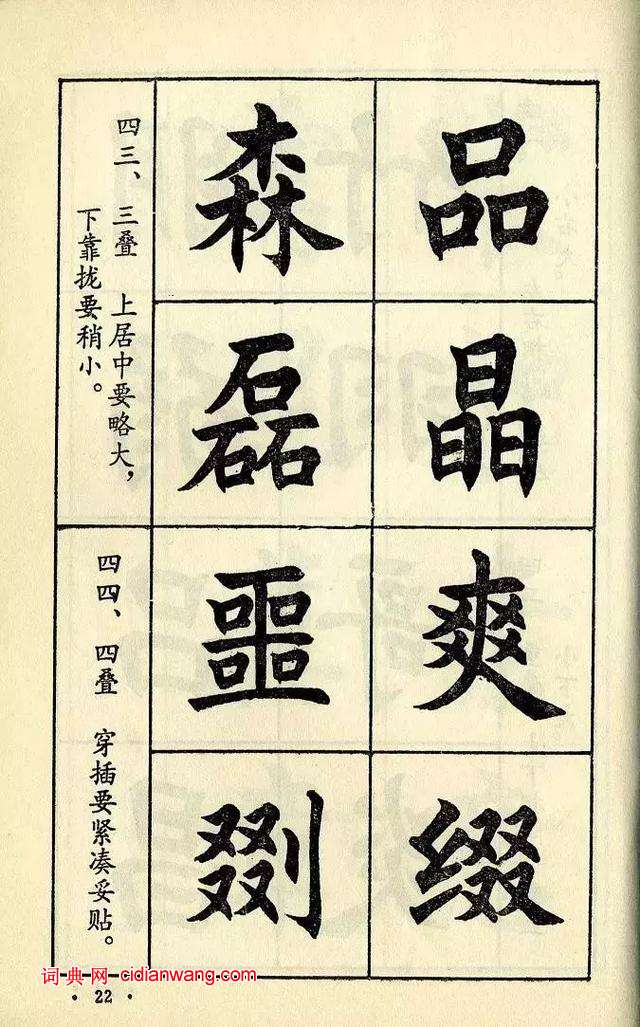 品晶爽缀
森磊噩剟
四三、三叠 上居中要略大，
下靠拢要稍小。
四四、四叠 穿插要紧凑妥贴。
词典网 cidianwang.com
· 22 ·